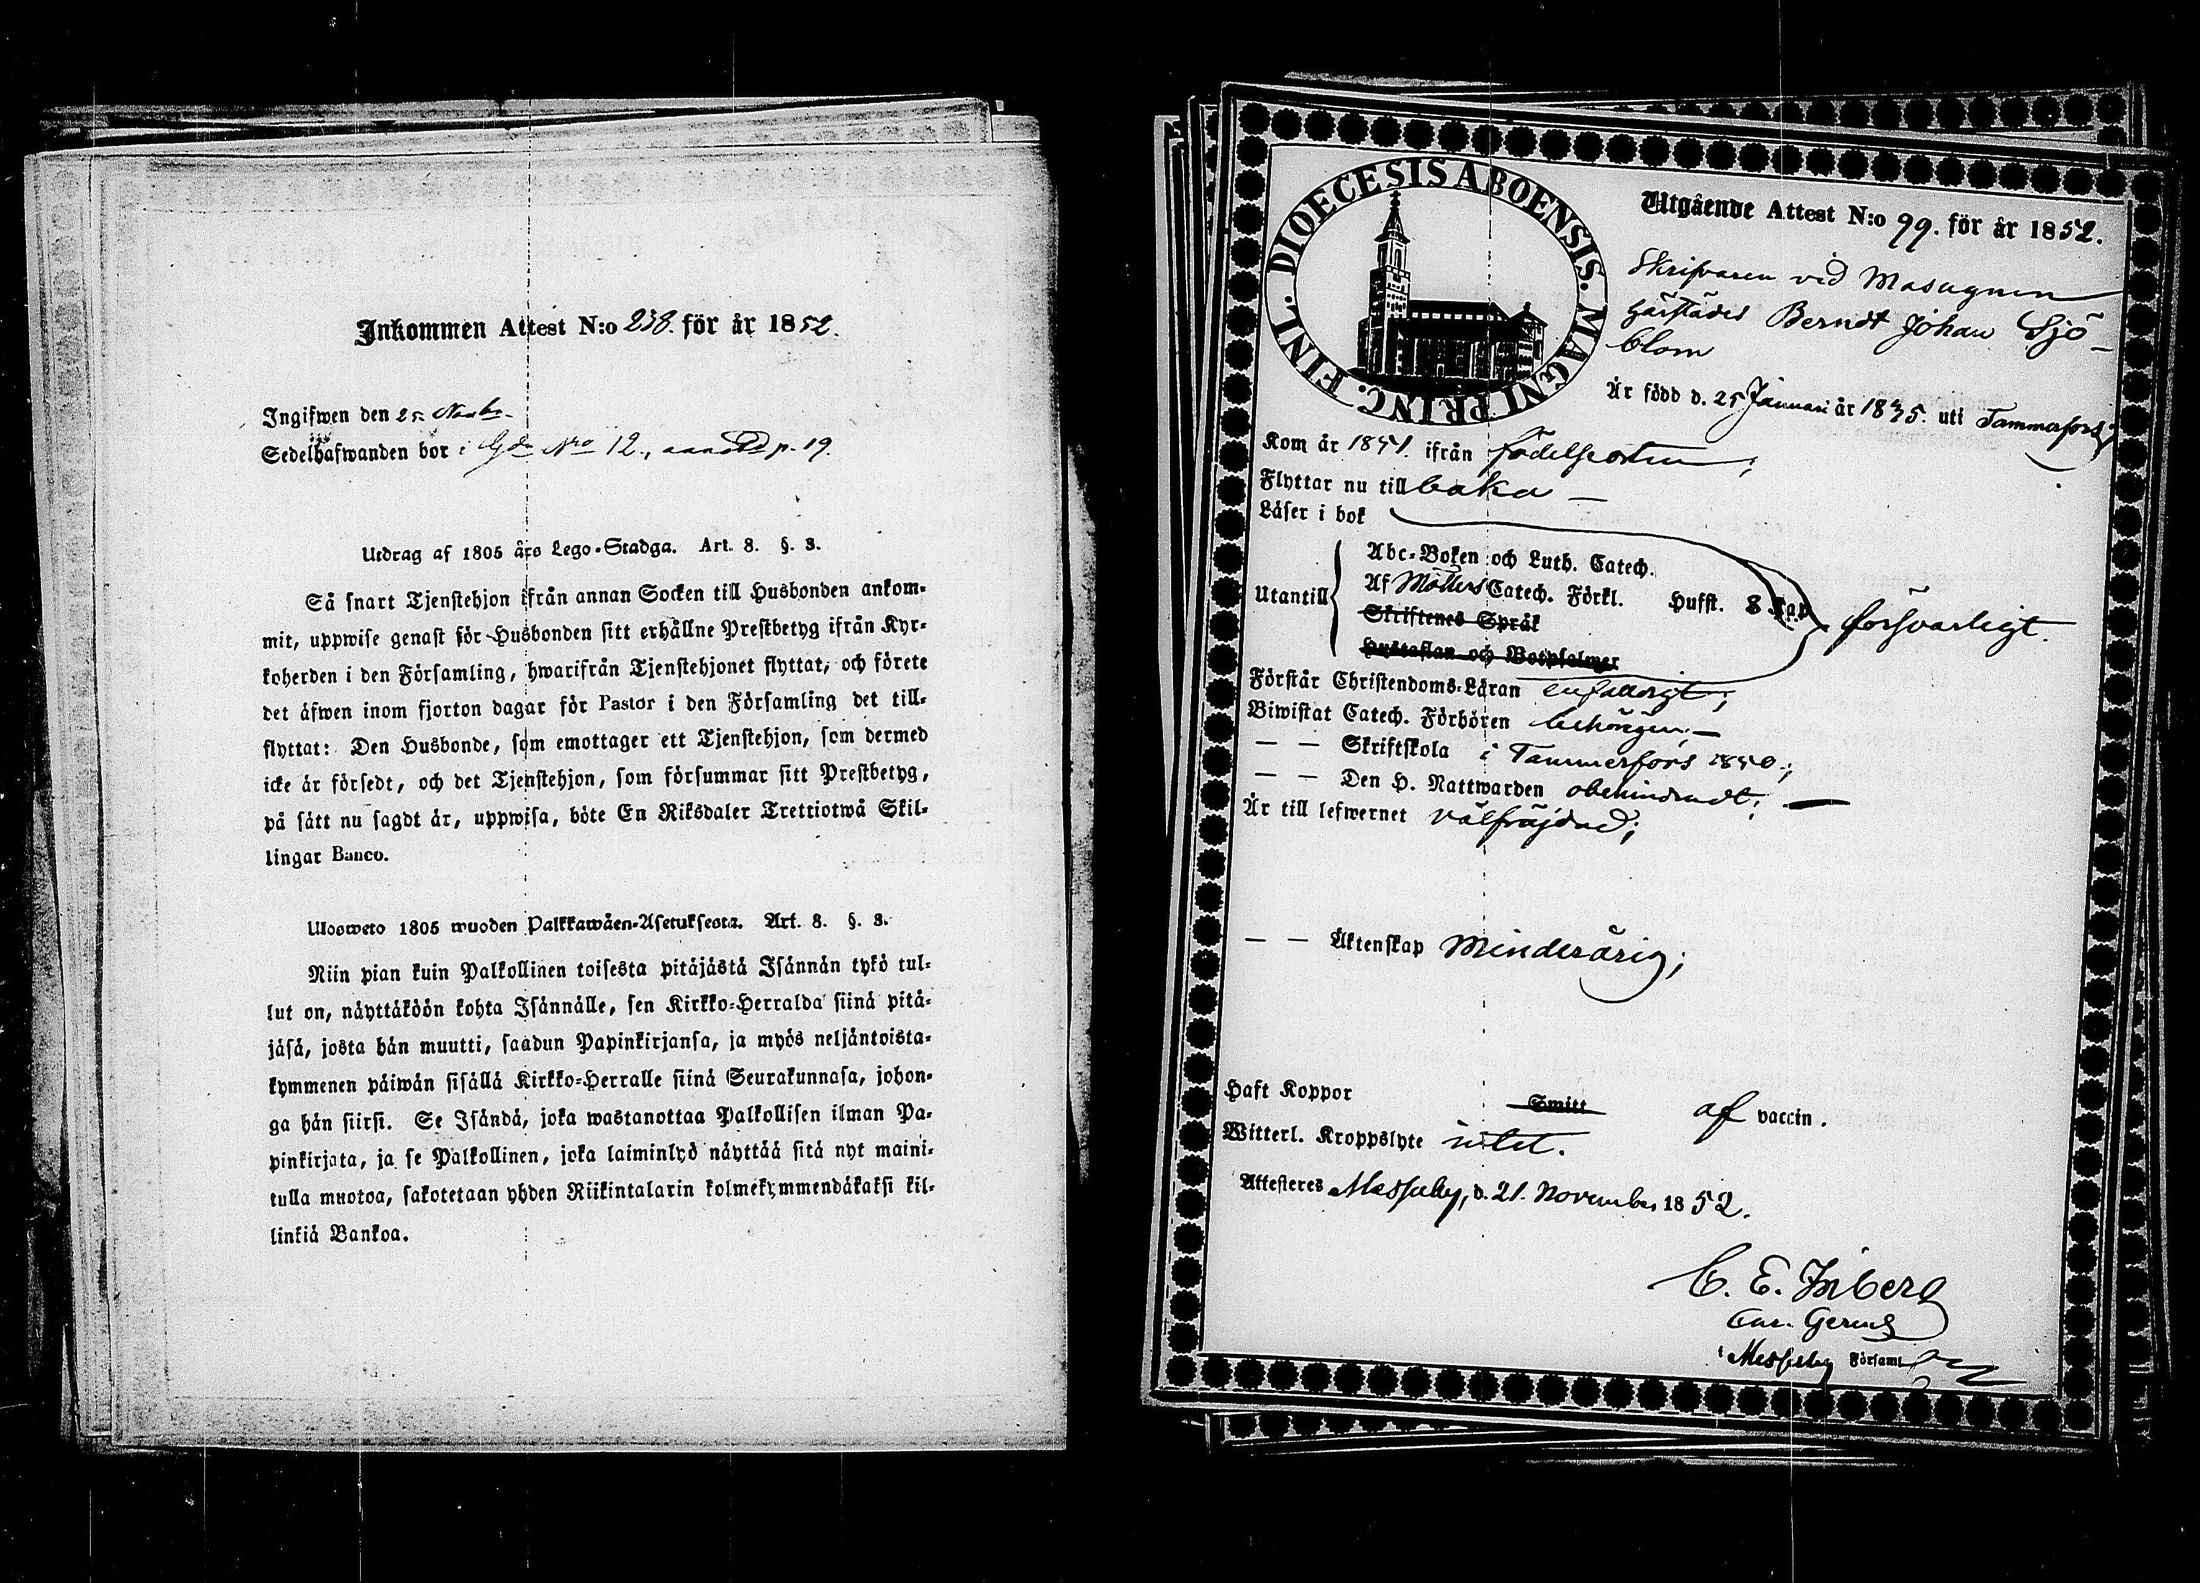 Inkommen Attest N:o 238. för år 1852.
Ingifwen den 25 Novbr.
Sedelhafwanden bor i Gdn Nro 12., p. 19.
Utdrag af 1805 års Lego-Stadga. Art. 8. §. 3.
Så snart Tjenstehjon ifrån annan Socken till Husbonden ankom-
mit, uppwise genast för Husbonden sitt erhållne Prestbetyg ifrån Kyr-
koherden i den Församling, hwarifrån Tjenstehjonet flyttat, och förete
det äfwen inom fjorton dagar för Pastor i den Församling det till-
flyttat: Den Husbonde, som emottager ett Tjenstehjon, som dermed
icke är försedt, och det Tjenstehjon, som försummar sitt Prestbetyg,
på sätt nu sagdt är, uppwisa, böte En Riksdaler Trettiotwå Skil-
lingar Banco.
Ulosweto 1805 wuoden Palkkawäen-Asetuksesta. Art. 8. §. 3.
Niin pian kuin Palkollinen toisesta pitäjästä Isännän tykö tul-
lut on, näyttäköön kohta Isännälle, sen Kirkko-Herralda siinä pitä-
jäsä, josta hän muutti, saadun Papinkirjansa, ja myös neljäntoista-
kymmenen päiwän sisällä Kirkko-Herralle siinä Seurakunnasa, johon-
ga hän siirsi. Se Isändä, joka wastanottaa Palkollisen ilman Pa-
pinkirjata, ja se Palkollinen, joka laiminlyö näyttää sitä nyt maini-
tulla muotoa, sakotetaan yhden Riikintalarin kolmekymmendäkaksi kil-
linkiä Bankoa.
DIOECESIS ABOENSIS. MAGNI PRINC. FINL.
Utgående Attest N:o 99. för år 1852.
Skrifvaren vid Masugnen
härstädes Berndt Johan Sjö-
blom
Är född d. 25 Januari år 1835. uti Tammerfors;
Kom år 1851. ifrån födelseorten;
Flyttar nu till baka –
Läser i bok
Abc-Boken och Luth. Catech.
Utantill Af Möllers Catech. Förkl. Husst. 8 Kap. försvarligt.
Skriftenes Språk
Hustaflan och Botpsalmer
Förstår Christendoms-Läran enfaldigt;
Biwistat Catech. Förhören behörigen; –
— — Skriftskola i Tammerfors 1850;
— — Den H. Nattwarden obehindradt; —
Är till lefwernet välfräjdad;
— — Äktenskap Minderårig;
Haft Koppor Smitt af vaccin.
Witterl. Kroppslyte intet.
Attesteres Messuby, d. 21. November 1852.
C. E. Inberg
i Messuby Församl